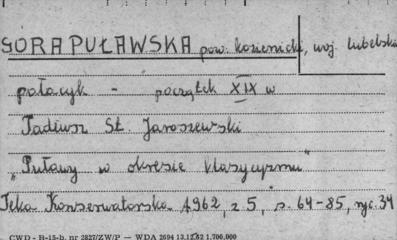 GÓRA PUŁAWSKA pow. kozienicki, woj. lubelskie
pałacyk - początek XIX w
Tadeusz St. Jaroszewski
"Puławy w okresie klasycyzmu"
Teka Konserwatorska 1962, z 5, s. 64-85, ryc. 34
CWD - B-15-b. nr 2827/ZW/P — WDA 2694 13.12.62 1.700.000